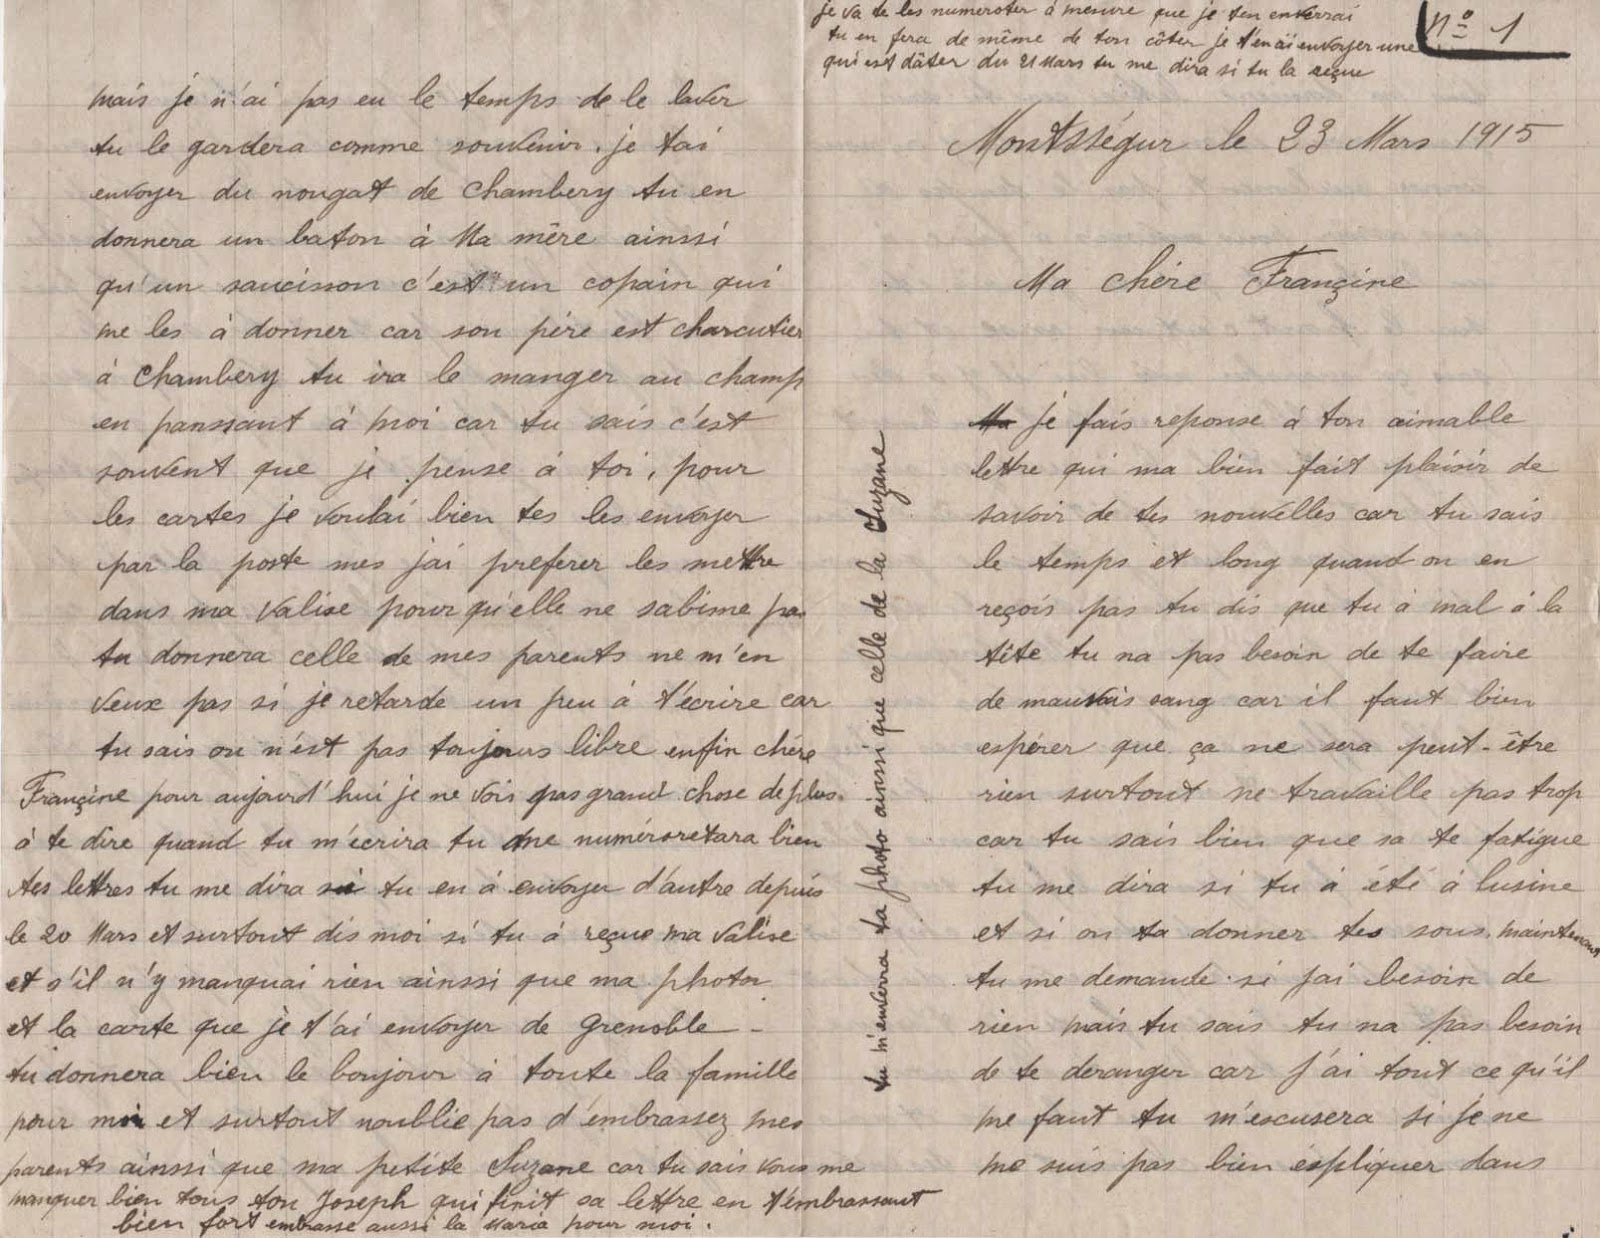 je va te les numeroter à mesure que je t'en enverrai
tu en fera de même de ton côter je t'en ai envoyer une
qui est dâter du 21 Mars tu me dira si tu la reçue
N° 1
Montségur le 23 Mars 1915
Ma chère Françine
Ma je fais reponse à ton aimable
lettre qui ma bien fait plaisir de
savoir de tes nouvelles car tu sais
le temps et long quand on en
reçois pas tu dis que tu à mal à la
tête tu na pas besoin de te faire
de mauvais sang car il faut bien
espérer que ça ne sera peut-être
rien surtout ne travaille pas trop
car tu sais bien que sa te fatigue
tu me dira si tu à été à lusine
et si on ta donner tes sous, maintenant
tu me demande si jai besoin de
rien mais tu sais tu na pas besoin
de te deranger car j'ai tout ce qu'il
me faut tu m'escusera si je ne
me suis pas bien éspliquer dans
mais je n'ai pas eu le temps de le laver
tu le gardera comme souvenir, je tai
envoyer du nougat de Chambery tu en
donnera un baton à Ma mère ainssi
qu'un saucisson c'est un copain qui
me les à donner car son père est charcutier
à Chambery tu ira le manger au champ
en panssant à moi car tu sais c'est
souvent que je pense à toi, pour
les cartes je voulai bien tes les envoyer
par la poste mes jai preferer les mettre
dans ma valise pour qu'elle ne sabime pas
tu donnera celle de mes parents ne m'en
veux pas si je retarde un peu à t'écrire car
tu sais on n'est pas toujours libre enfin chère
Françine pour aujourd'hui je ne vois pas grand chose de plus
à te dire quand tu m'écrira tu me numérotera bien
tes lettres tu me dira si tu en à envoyer d'autre depuis
le 20 Mars et surtout dis moi si tu à reçue ma valise
et s'il n'y manquai rien ainssi que ma photo
et la carte que je t'ai envoyer de Grenoble -
tu donnera bien le bonjour à toute la famille
pour moi et surtout noublie pas d'embrassez mes
parents ainssi que ma petite Suzane car tu sais vous me
manquer bien tous ton Joseph qui finit sa lettre en t'embrassant
bien fort embrasse aussi la Maria pour moi.
tu m'enverra ta photo ainssi que celle de la Suzane